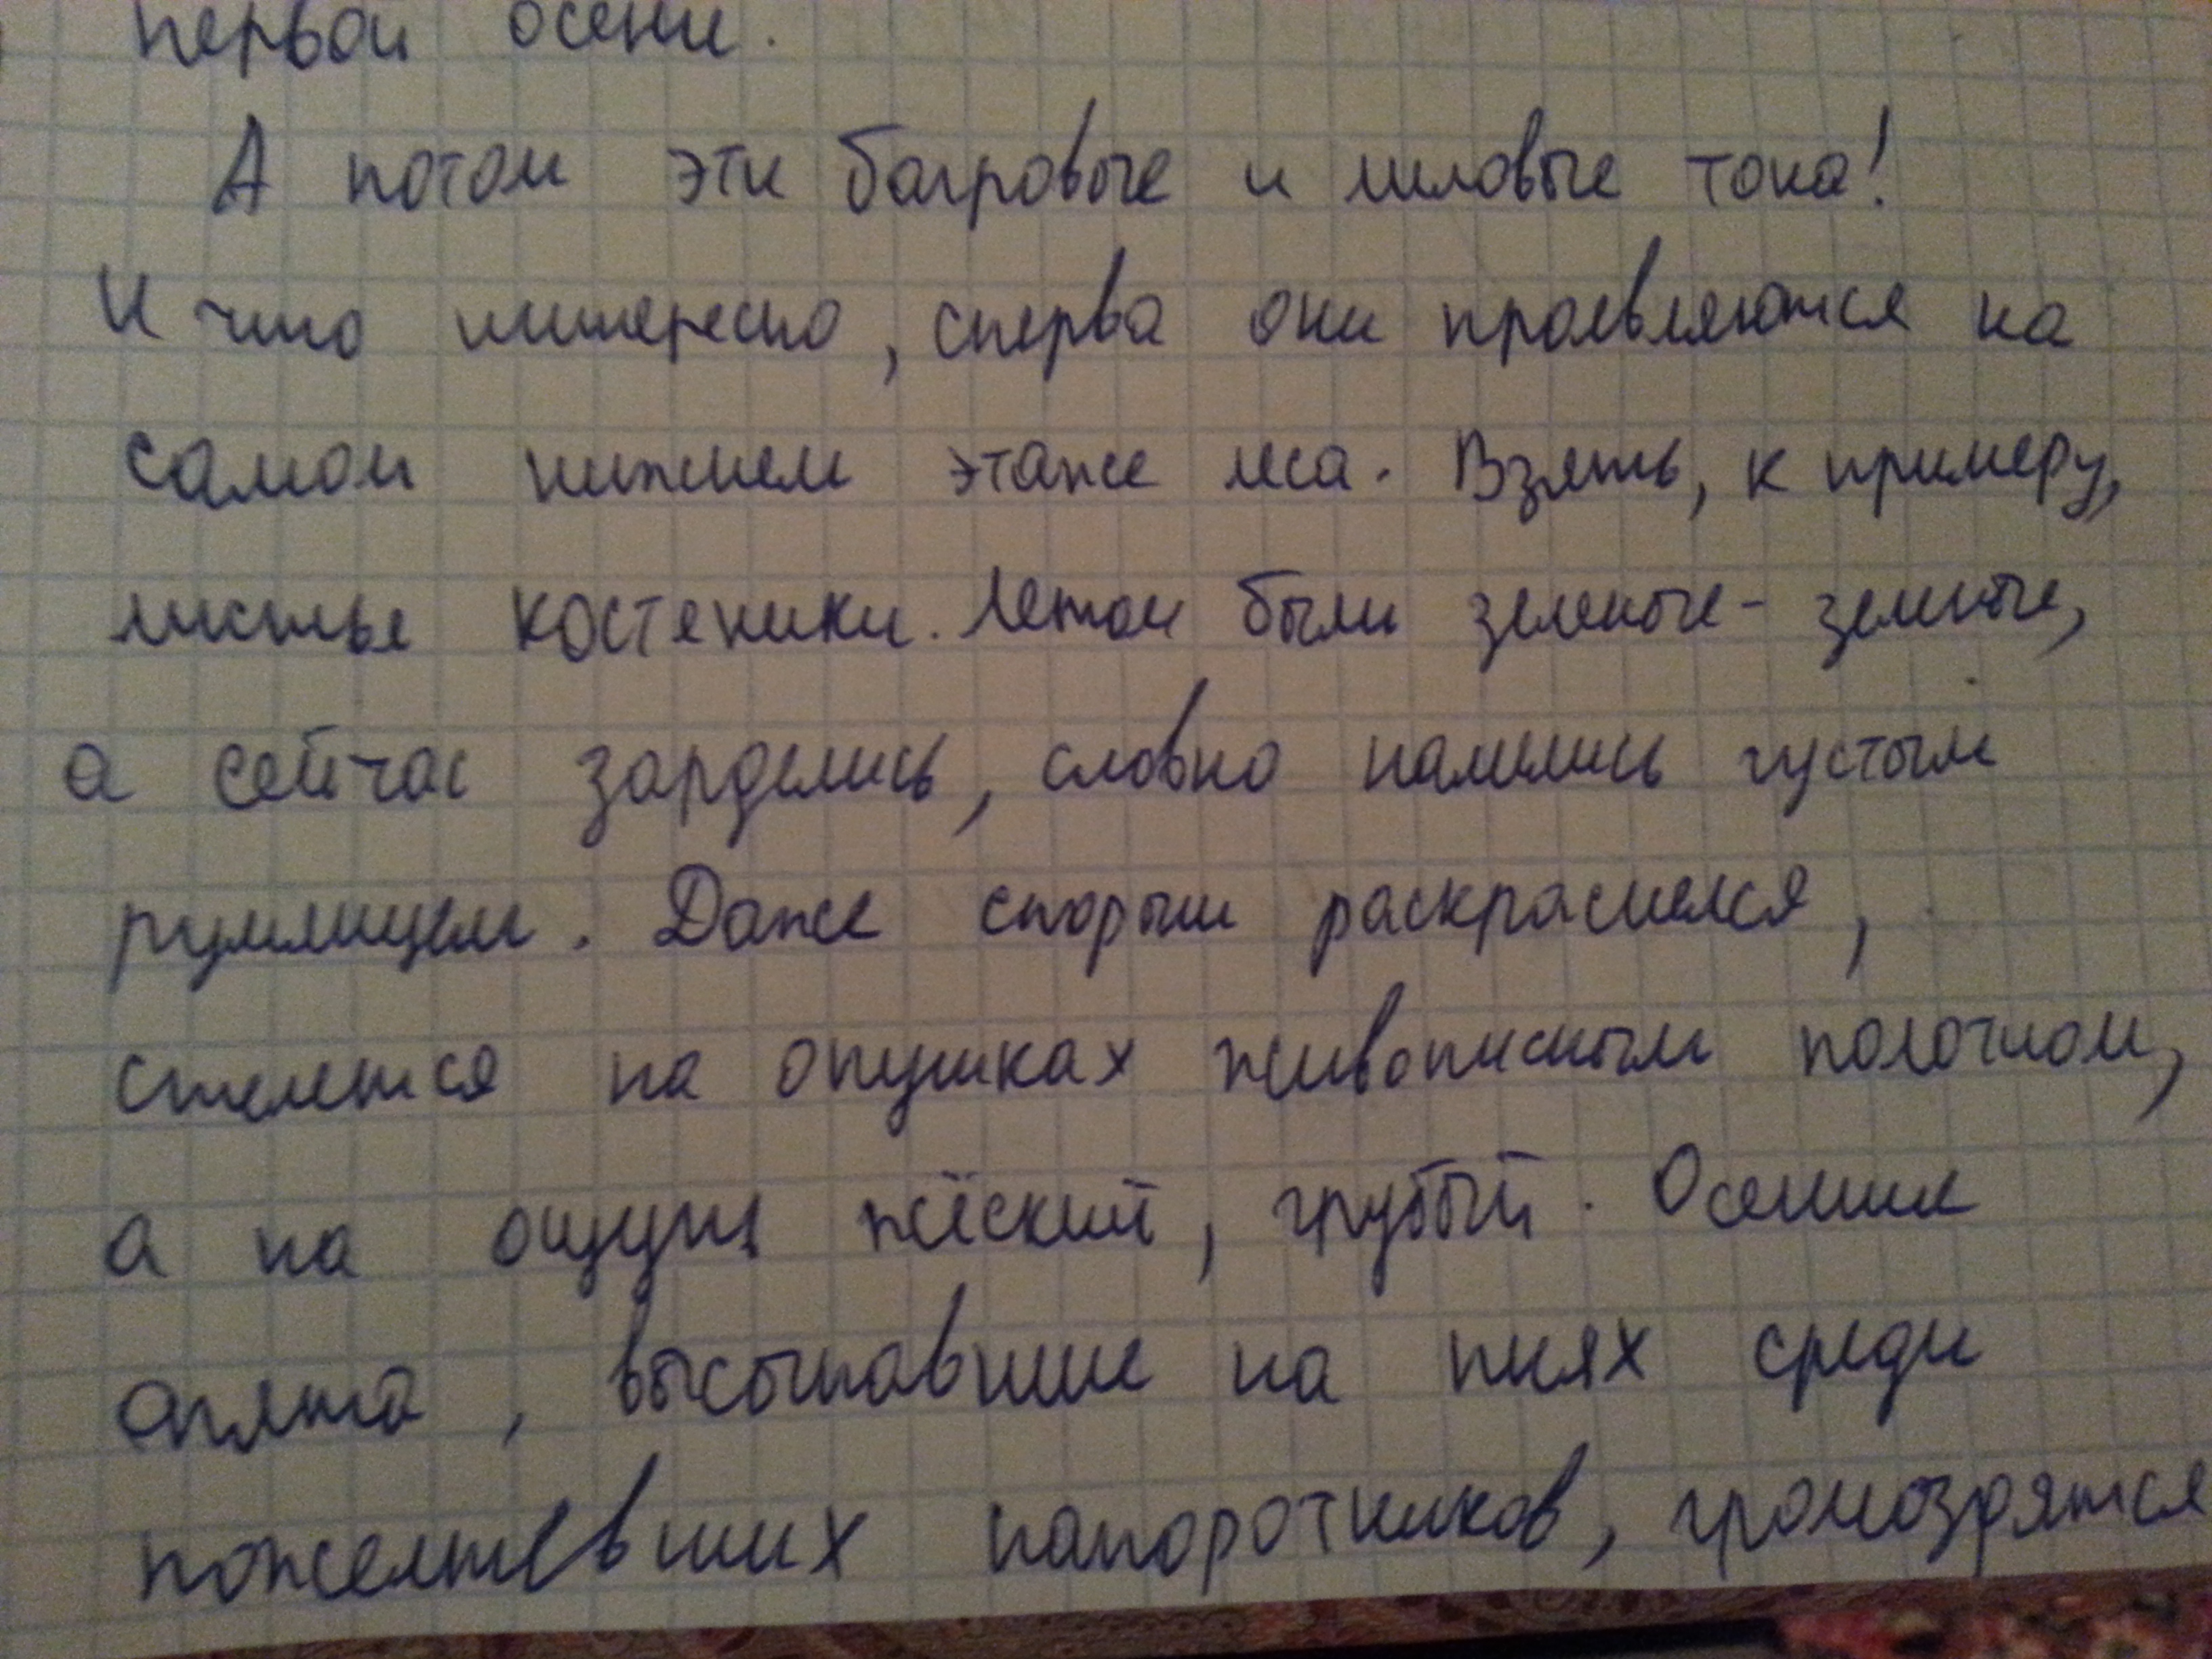 первой осени.
А потом эти багровые и лиловые тона!
И что интересно, сперва они проявляются на
самом нижнем этаже леса. Взять, к примеру,
листье костеники. Летом были зеленые-зелные,
а сейчас зарделись, словно налились густым
румянцем. Даже спорыш раскраснелся,
стелется на опушках живописным полочном,
а на ощупь жёский, грубый. Осенние
опята, высыпавшие на пнях среди
пожелтевших папоротников, громоздятся